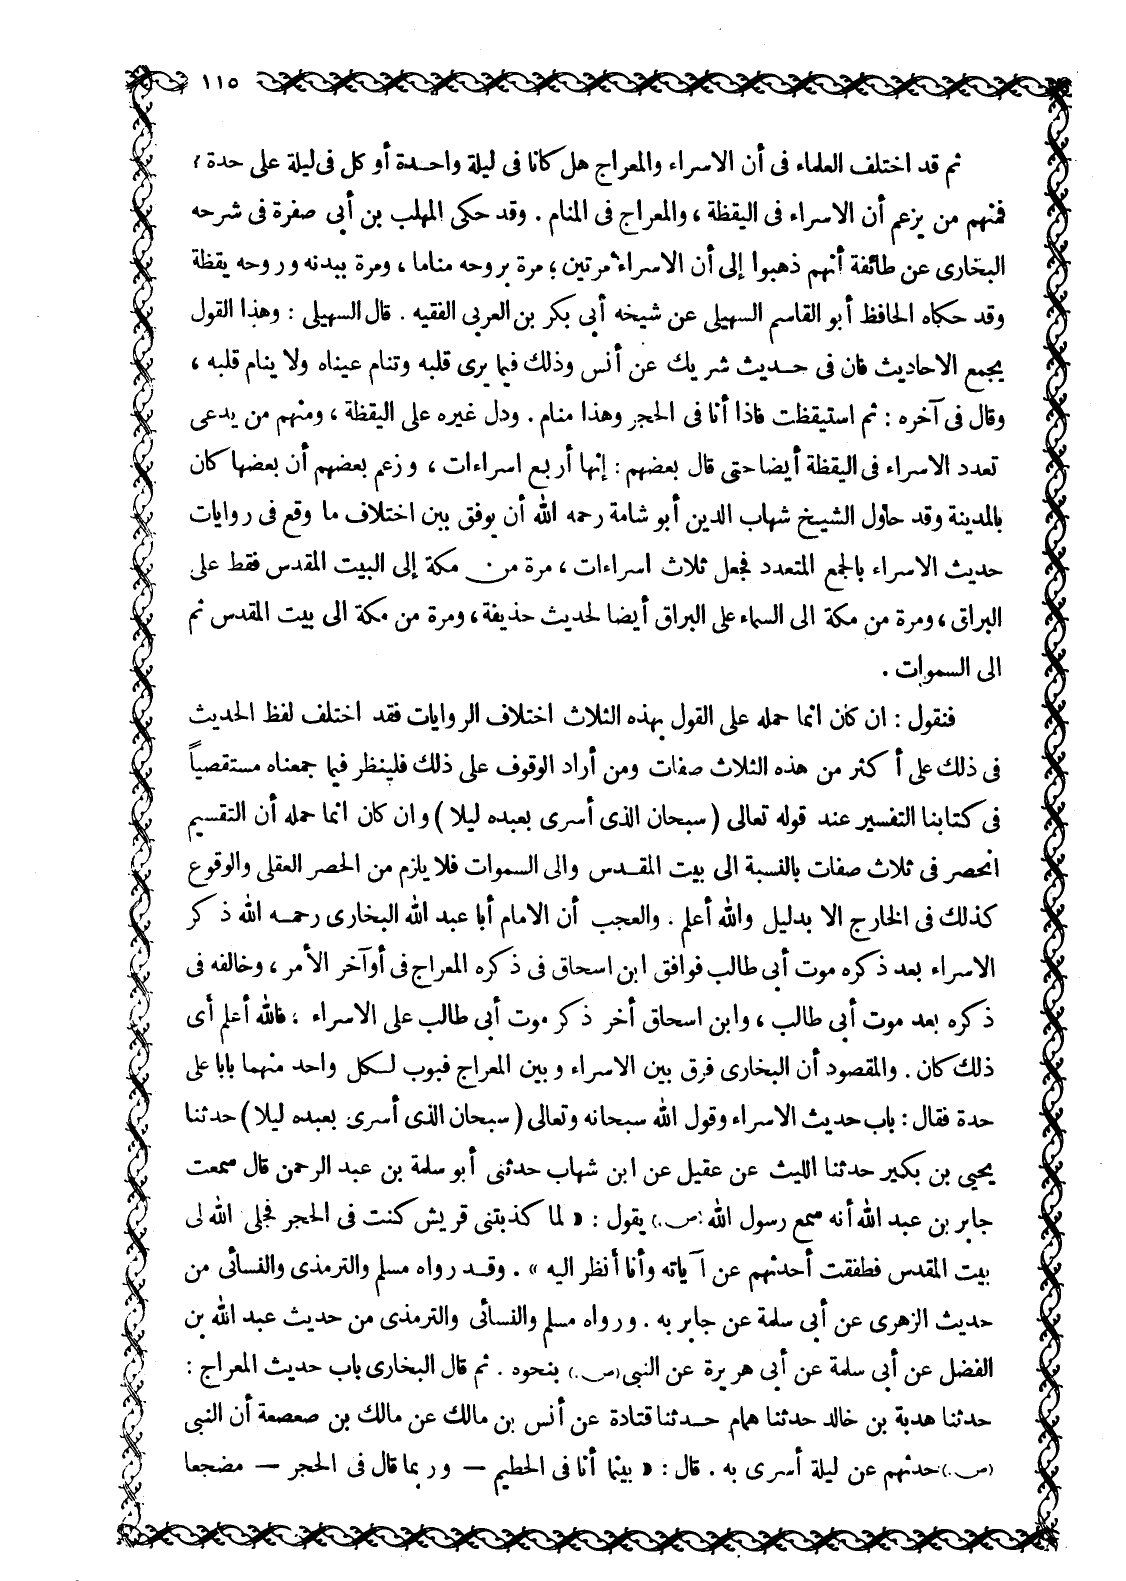 ١١٥
ثم قد اختلف العلماء فى أن الاسراء والمعراج هل كانا فى ليلة واحدة أو كل فى ليلة على حدة ؟
فمنهم من يزعم أن الاسراء فى اليقظة ، والمعراج فى المنام . وقد حكى المهلب بن أبى صفرة فى شرحه
البخارى عن طائفة أنهم ذهبوا إلى أن الاسراء مرتين ؛ مرة بروحه مناما ، ومرة ببدنه وروحه يقظة
وقد حكاه الحافظ أبو القاسم السهيلى عن شيخه أبى بكر بن العربى الفقيه . قال السهيلى : وهذا القول
يجمع الاحاديث فان فى حديث شريك عن أنس وذلك فيما يرى قلبه وتنام عيناه ولا ينام قلبه ،
وقال فى آخره : ثم استيقظت فاذا أنا فى الحجر وهذا منام . ودل غيره على اليقظة ، ومنهم من يدعى
تعدد الاسراء فى اليقظة أيضا حتى قال بعضهم : إنها أربع اسراءات ، وزعم بعضهم أن بعضها كان
بالمدينة وقد حاول الشيخ شهاب الدين أبو شامة رحمه الله أن يوفق بين اختلاف ما وقع فى روايات
حديث الاسراء بالجمع المتعدد فجعل ثلاث اسراءات ، مرة من مكة إلى البيت المقدس فقط على
البراق ، ومرة من مكة الى السماء على البراق أيضا لحديث حذيفة ، ومرة من مكة الى بيت المقدس ثم
الى السموات .
فنقول : ان كان انما حمله على القول بهذه الثلاث اختلاف الروايات فقد اختلف لفظ الحديث
فى ذلك على أكثر من هذه الثلاث صفات ومن أراد الوقوف على ذلك فلينظر فيما جمعناه مستقصياً
فى كتابنا التفسير عند قوله تعالى ( سبحان الذى أسرى بعبده ليلا ) وان كان انما حمله أن التقسيم
انحصر فى ثلاث صفات بالنسبة الى بيت المقدس والى السموات فلا يلزم من الحصر العقلى والوقوع
كذلك فى الخارج الا بدليل والله أعلم . والعجب أن الامام أبا عبد الله البخارى رحمه الله ذكر
الاسراء بعد ذكره موت أبى طالب فوافق ابن اسحاق فى ذكره المعراج فى أوآخر الأمر ، وخالفه فى
ذكره بعد موت أبى طالب ، وابن اسحاق أخر ذكر موت أبى طالب على الاسراء ، فالله أعلم أى
ذلك كان . والمقصود أن البخارى فرق بين الاسراء وبين المعراج فبوب لكل واحد منهما بابا على
حدة فقال : باب حديث الاسراء وقول الله سبحانه وتعالى ( سبحان الذى أسرى بعبده ليلا ) حدثنا
يحيى بن بكير حدثنا الليث عن عقيل عن ابن شهاب حدثنى أبو سلمة بن عبد الرحمن قال سمعت
جابر بن عبد الله أنه سمع رسول الله (ص.) يقول : « لما كذبتنى قريش كنت فى الحجر فجلى الله لى
بيت المقدس فطفقت أحدثهم عن آياته وأنا أنظر اليه » . وقد رواه مسلم والترمذى والنسائى من
حديث الزهرى عن أبى سلمة عن جابر به . ورواه مسلم والنسائى والترمذى من حديث عبد الله بن
الفضل عن أبى سلمة عن أبى هريرة عن النبى (ص.) بنحوه . ثم قال البخارى باب حديث المعراج :
حدثنا هدبة بن خالد حدثنا همام حدثنا قتادة عن أنس بن مالك عن مالك بن صعصعة أن النبى
(ص.) حدثهم عن ليلة أسرى به . قال : « بينما أنا فى الحطيم — وربما قال فى الحجر — مضجعا